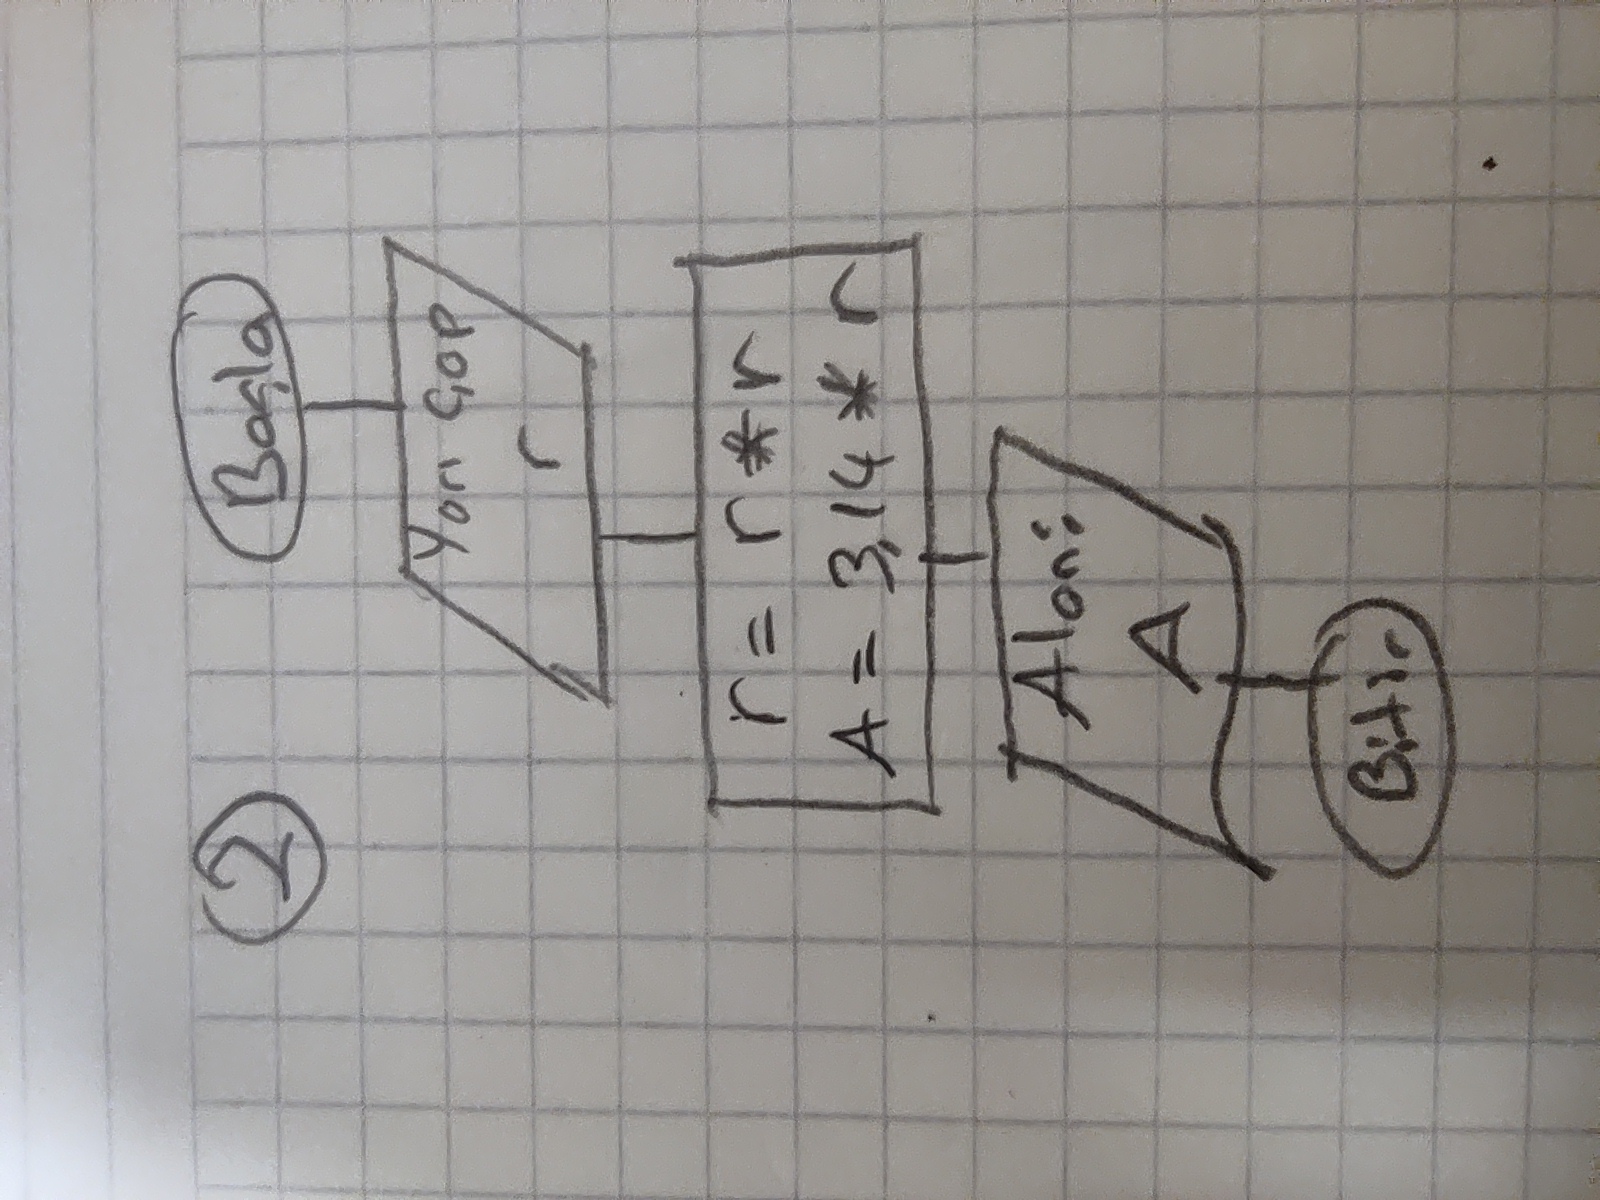 2
Başla
Yarı Çap
r
r = r * r
A = 3,14 * r
Alan:
A
Bitir